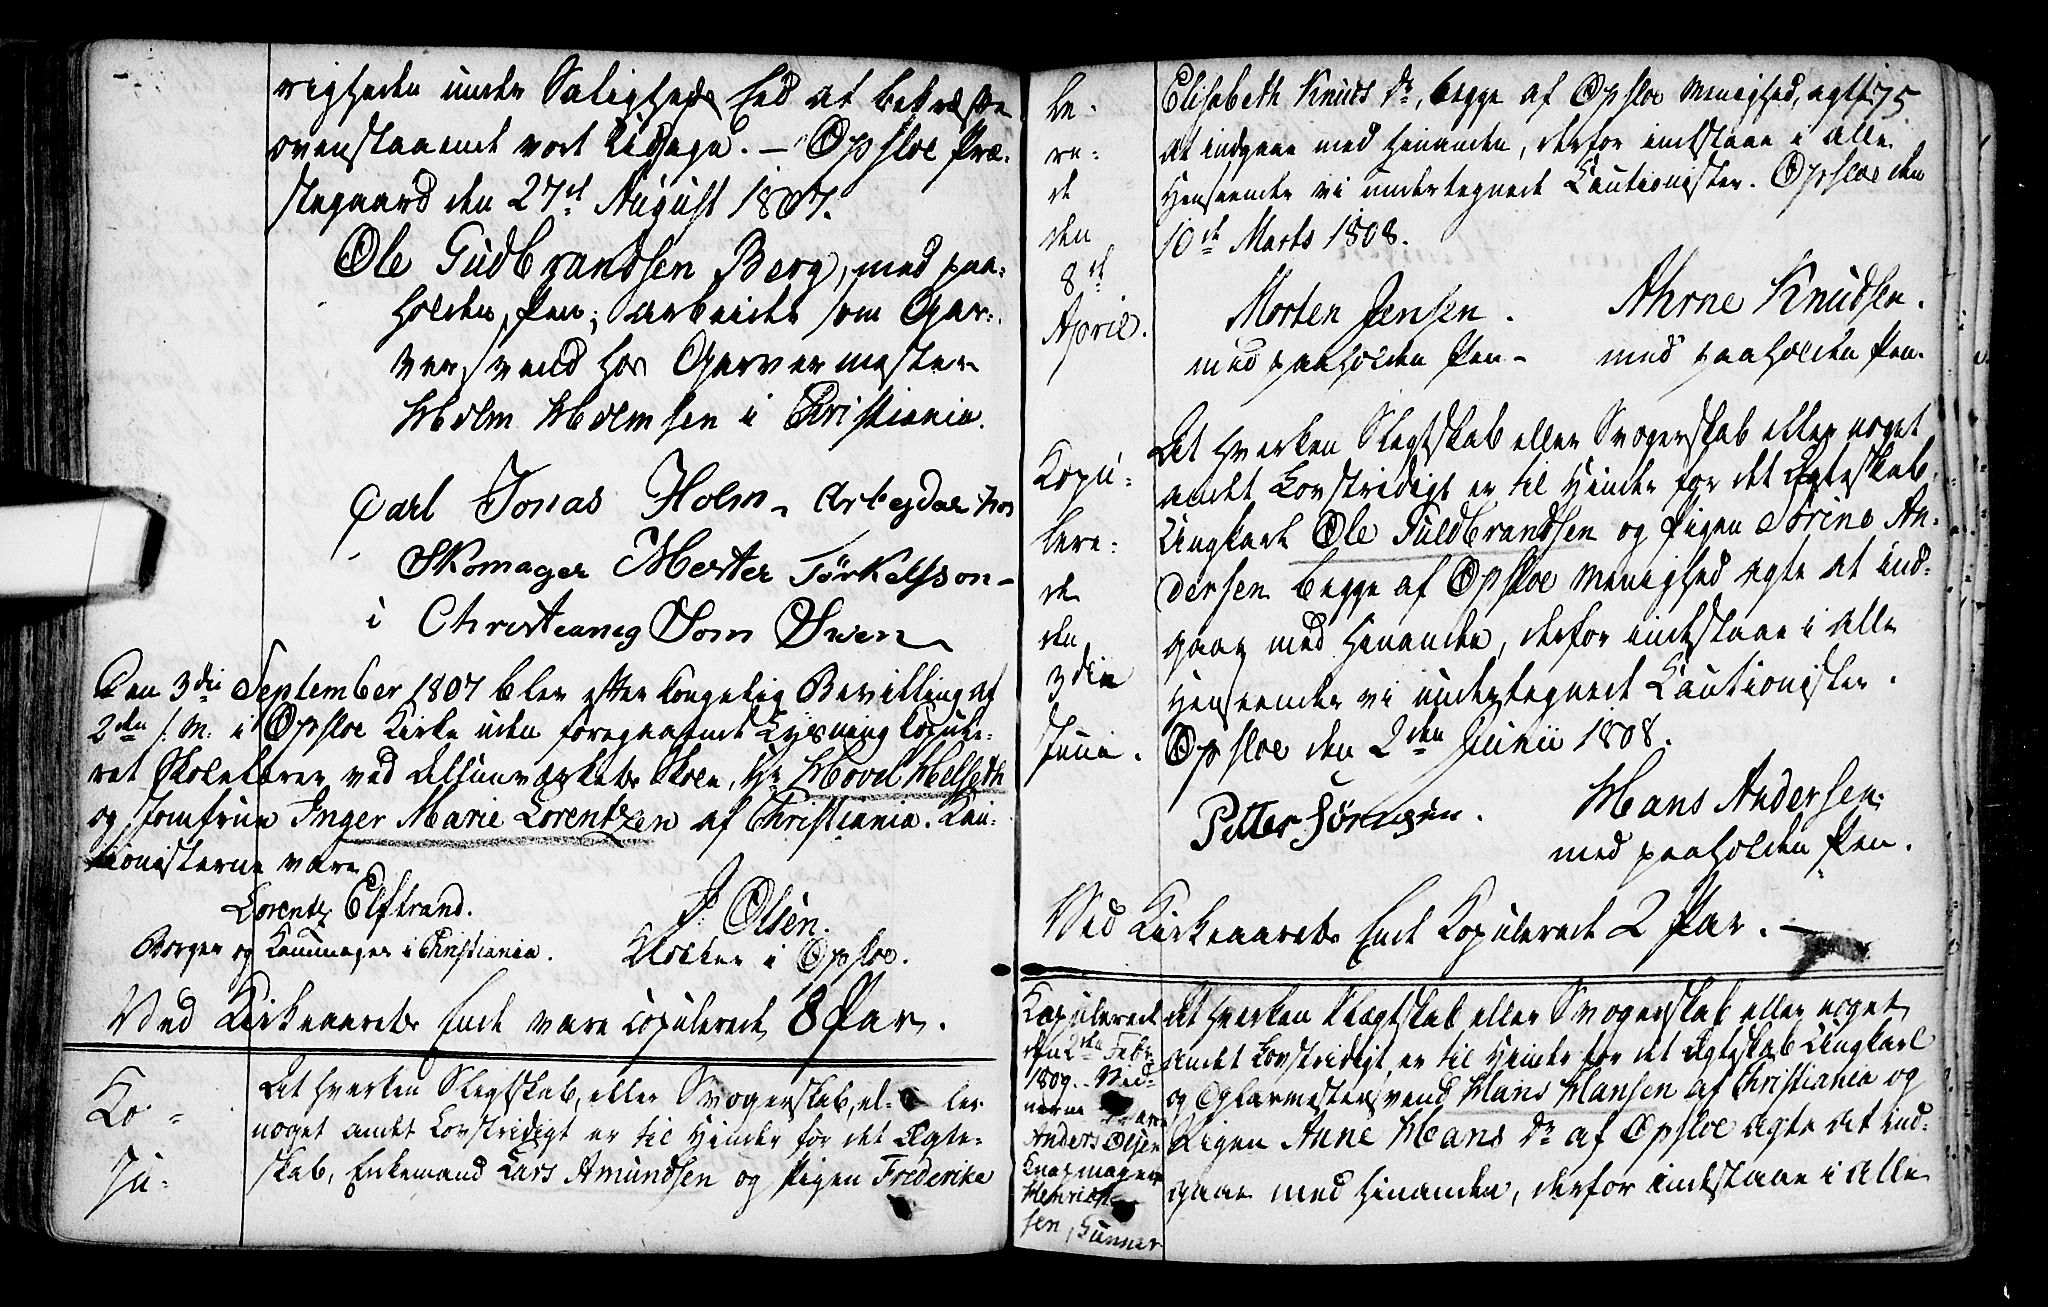 righeden under Saligheds Eed at bekræfte
ovenstaaende vort Udsagn. – Opsloe Præ-
stegaard den 27d August 1807.
Ole Gudbrandsen Berg, med paa-
holden Pen; arbeider som Gar-
versvend hos Garvermester
Holm Holmsen i Christiania.
Carl Jonas Holm – Arbeyder hos
Skomager Mester Törkelsson –
i Christianeg Som Swen
Den 3die September 1807 blev efter kongelig Bevilling af
2den s: M: i Opsloe Kirke uden foregaaende Lysning copule-
ret Skolelærer ved Allunværkets Skole, Hr Hovel Helseth
og Jomfrue Inger Marie Lorentzen af Christiania. Kau-
tionisterne vare
Lorentz Elfstrand.
Borger og Kandmager i Christiania.
J: Olsen.
Klokker i Opsloe.
Ved Kirkeaarets Ende vare copulerede 8 Par.
Ko-
pu-
At hverken Slegtskab, eller Svogerskab, el- ler
noget andet Lovstridigt er til Hinder for det Ægte-
skab, Enkemand Lars Amundsen og Pigen Frederike
le-
re-
de
den
8de
April.
Elisabeth Knuds Dr, begge af Opsloe Menighed, agte 175.
at indgaae med hinanden, derfor indstaae i alle
Henseender vi undertegnede Cautionister. Opsloe den
10de Marts 1808.
Morten Jensen.
med paaholden Pen –
Ahrne Knudsen.
med paaholden Pen.
Kopu-
lere-
de
den
3die
Junii.
At hverken Slegtskab eller Svogerskab eller noget
andet Lovstridigt er til Hinder for det Ægteskab,
Ungkarl Ole Guldbrandsen og Pigen Sörine An-
dersen begge af Opsloe Menighed agte at ind-
gaae med hinanden, derfor indestaae i alle
Henseender vi undertegnede Cautionister.
Opsloe den 2den Junii 1808.
Petter Sörensen.
Hans Andersen.
med paaholden Pen.
Ved Kirkeaarets Ende Kopulerede 2 Par. –
Kopulerede
den 2den Febr.
1809. – Vid-
nerne vare
Anders Olsen
Knapmager
Henrich-
sen, Gunner
At hverken Slægtskab eller Svogerskab eller noget
andet Lovstridigt, er til Hinder for det Ægteskab Ungkarl
og Glarmestersvend Hans Hansen af Christiania og
Pigen Anne Hans Dr af Opsloe agte at ind-
gaae med hinanden, derfor indestaae i alle